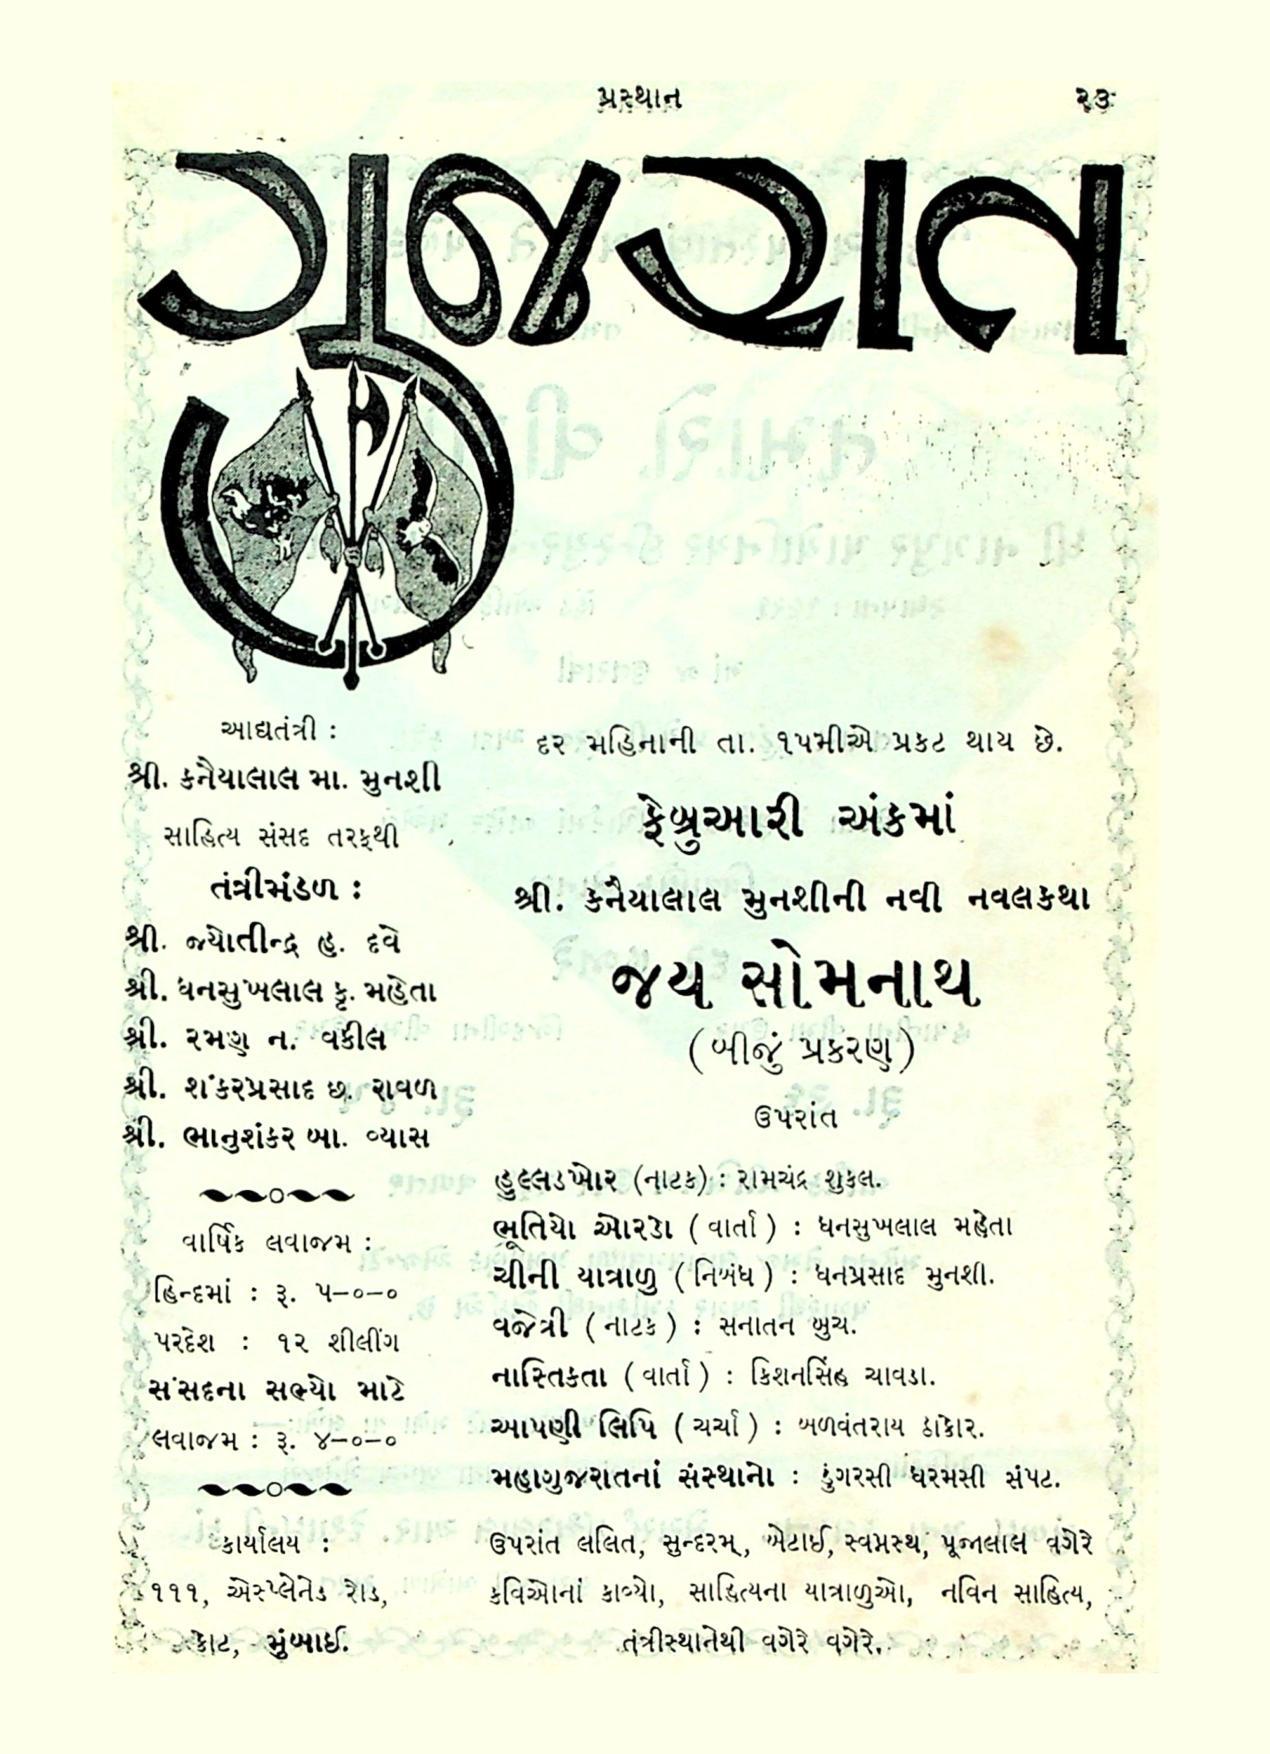 પ્રસ્થાન
૨૩
ગુજરાત
આદ્યતંત્રી :
શ્રી. કનૈયાલાલ મા. મુનશી
સાહિત્ય સંસદ તરફથી
તંત્રીમંડળ :
શ્રી. જ્યોતીન્દ્ર હ. દવે
શ્રી. ધનસુખલાલ કૃ. મહેતા
શ્રી. રમણ ન. વકીલ
શ્રી. શંકરપ્રસાદ છ. રાવળ
શ્રી. ભાનુશંકર બા. વ્યાસ
વાર્ષિક લવાજમ :
હિન્દમાં : રૂ. ૫-૦-૦
પરદેશ : ૧૨ શીલીંગ
સંસદના સભ્યો માટે
લવાજમ : રૂ. ૪-૦-૦
કાર્યાલય :
૧૧૧, એસ્પ્લેનેડ રોડ,
કોટ, મુંબાઈ.
દર મહિનાની તા. ૧૫મીએ પ્રકટ થાય છે.
ફેબ્રુઆરી અંકમાં
શ્રી. કનૈયાલાલ મુનશીની નવી નવલકથા
જય સોમનાથ
(બીજું પ્રકરણ)
ઉપરાંત
હુલ્લડખોર (નાટક) : રામચંદ્ર શુકલ.
ભૂતિયો ઓરડો (વાર્તા) : ધનસુખલાલ મહેતા
ચીની યાત્રાળુ (નિબંધ) : ધનપ્રસાદ મુનશી.
વજેત્રી (નાટક) : સનાતન બુચ.
નાસ્તિકતા (વાર્તા) : કિશનસિંહ ચાવડા.
આપણી લિપિ (ચર્ચા) : બળવંતરાય ઠાકોર.
મહાગુજરાતનાં સંસ્થાનો : ડુંગરસી ધરમસી સંપટ.
ઉપરાંત લલિત, સુન્દરમ્, બેટાઈ, સ્વપ્નસ્થ, પૂજાલાલ વગેરે
કવિઓનાં કાવ્યો, સાહિત્યના યાત્રાળુઓ, નવિન સાહિત્ય,
તંત્રીસ્થાનેથી વગેરે વગેરે.